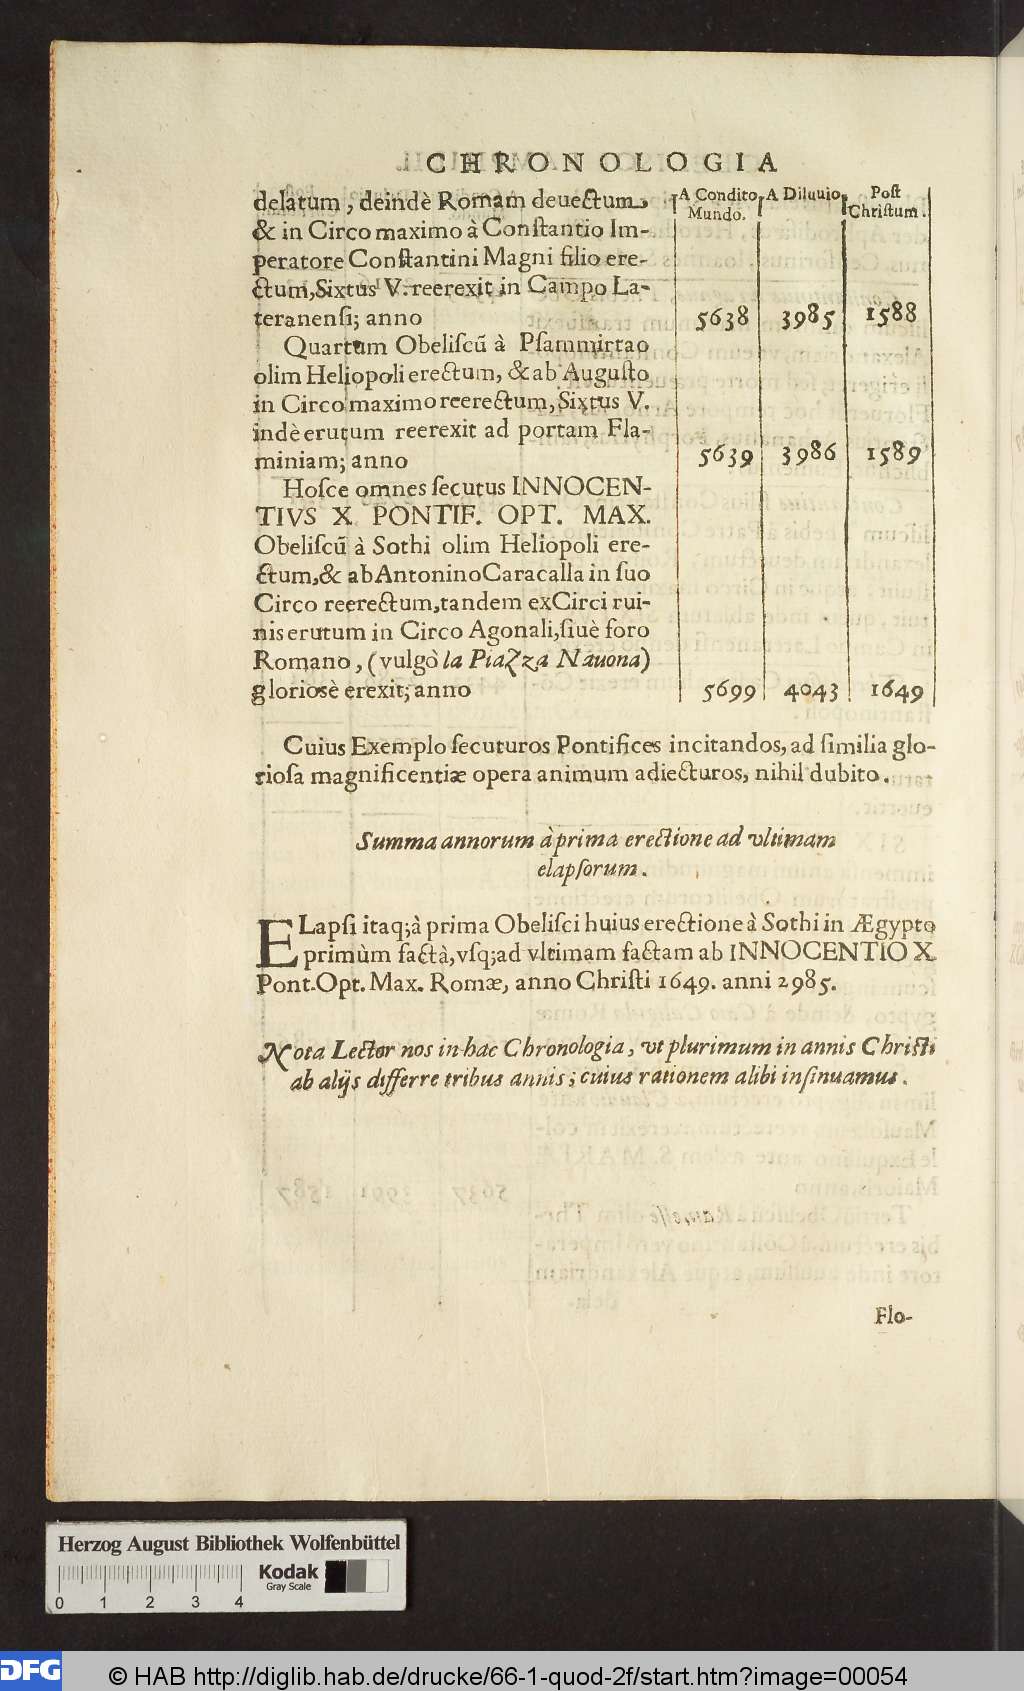 CHRONOLOGIA
A Condito Mundo. A Diluuio, Poſt Chriſtum.
delatum, deindè Romam deuectum,
& in Circo maximo à Conſtantio Im-
peratore Conſtantini Magni filio ere-
ctum, Sixtus V. reerexit in Campo La-
teranenſi; anno 5638 3985 1588
Quartum Obeliſcũ à Pſammirtao
olim Heliopoli erectum, & ab Auguſto
in Circo maximo reerectum, Sixtus V.
indè erutum reerexit ad portam Fla-
miniam; anno 5639 3986 1589
Hoſce omnes ſecutus INNOCEN-
TIVS X PONTIF. OPT. MAX.
Obeliſcũ à Sothi olim Heliopoli ere-
ctum, & ab Antonino Caracalla in ſuo
Circo reerectum, tandem ex Circi rui-
nis erutum in Circo Agonali, ſiuè foro
Romano, (vulgò la Piazza Nauona)
gloriosè erexit; anno 5699 4043 1649
Cuius Exemplo ſecuturos Pontifices incitandos, ad ſimilia glo-
rioſa magnificentiæ opera animum adiecturos, nihil dubito.
Summa annorum à prima erectione ad vltimam
elapſorum.
ELapſi itaq; à prima Obeliſci huius erectione à Sothi in Ægypto
primùm factà, vſq; ad vltimam factam ab INNOCENTIO X.
Pont. Opt. Max. Romæ, anno Chriſti 1649. anni 2985.
Nota Lector nos in hac Chronologia, vt plurimum in annis Chriſti
ab alijs differre tribus annis; cuius rationem alibi inſinuamus.
Flo-
Herzog August Bibliothek Wolfenbüttel
Kodak
Gray Scale
0 1 2 3 4
DFG © HAB http://diglib.hab.de/drucke/66-1-quod-2f/start.htm?image=00054